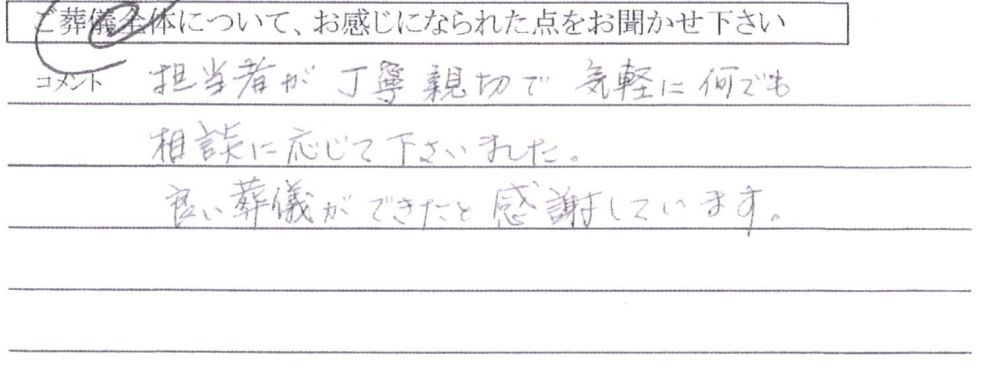 ご葬儀全体について、お感じになられた点をお聞かせ下さい
コメント 担当者が丁寧親切で気軽に何でも
相談に応じて下さいました。
良い葬儀ができたと感謝しています。